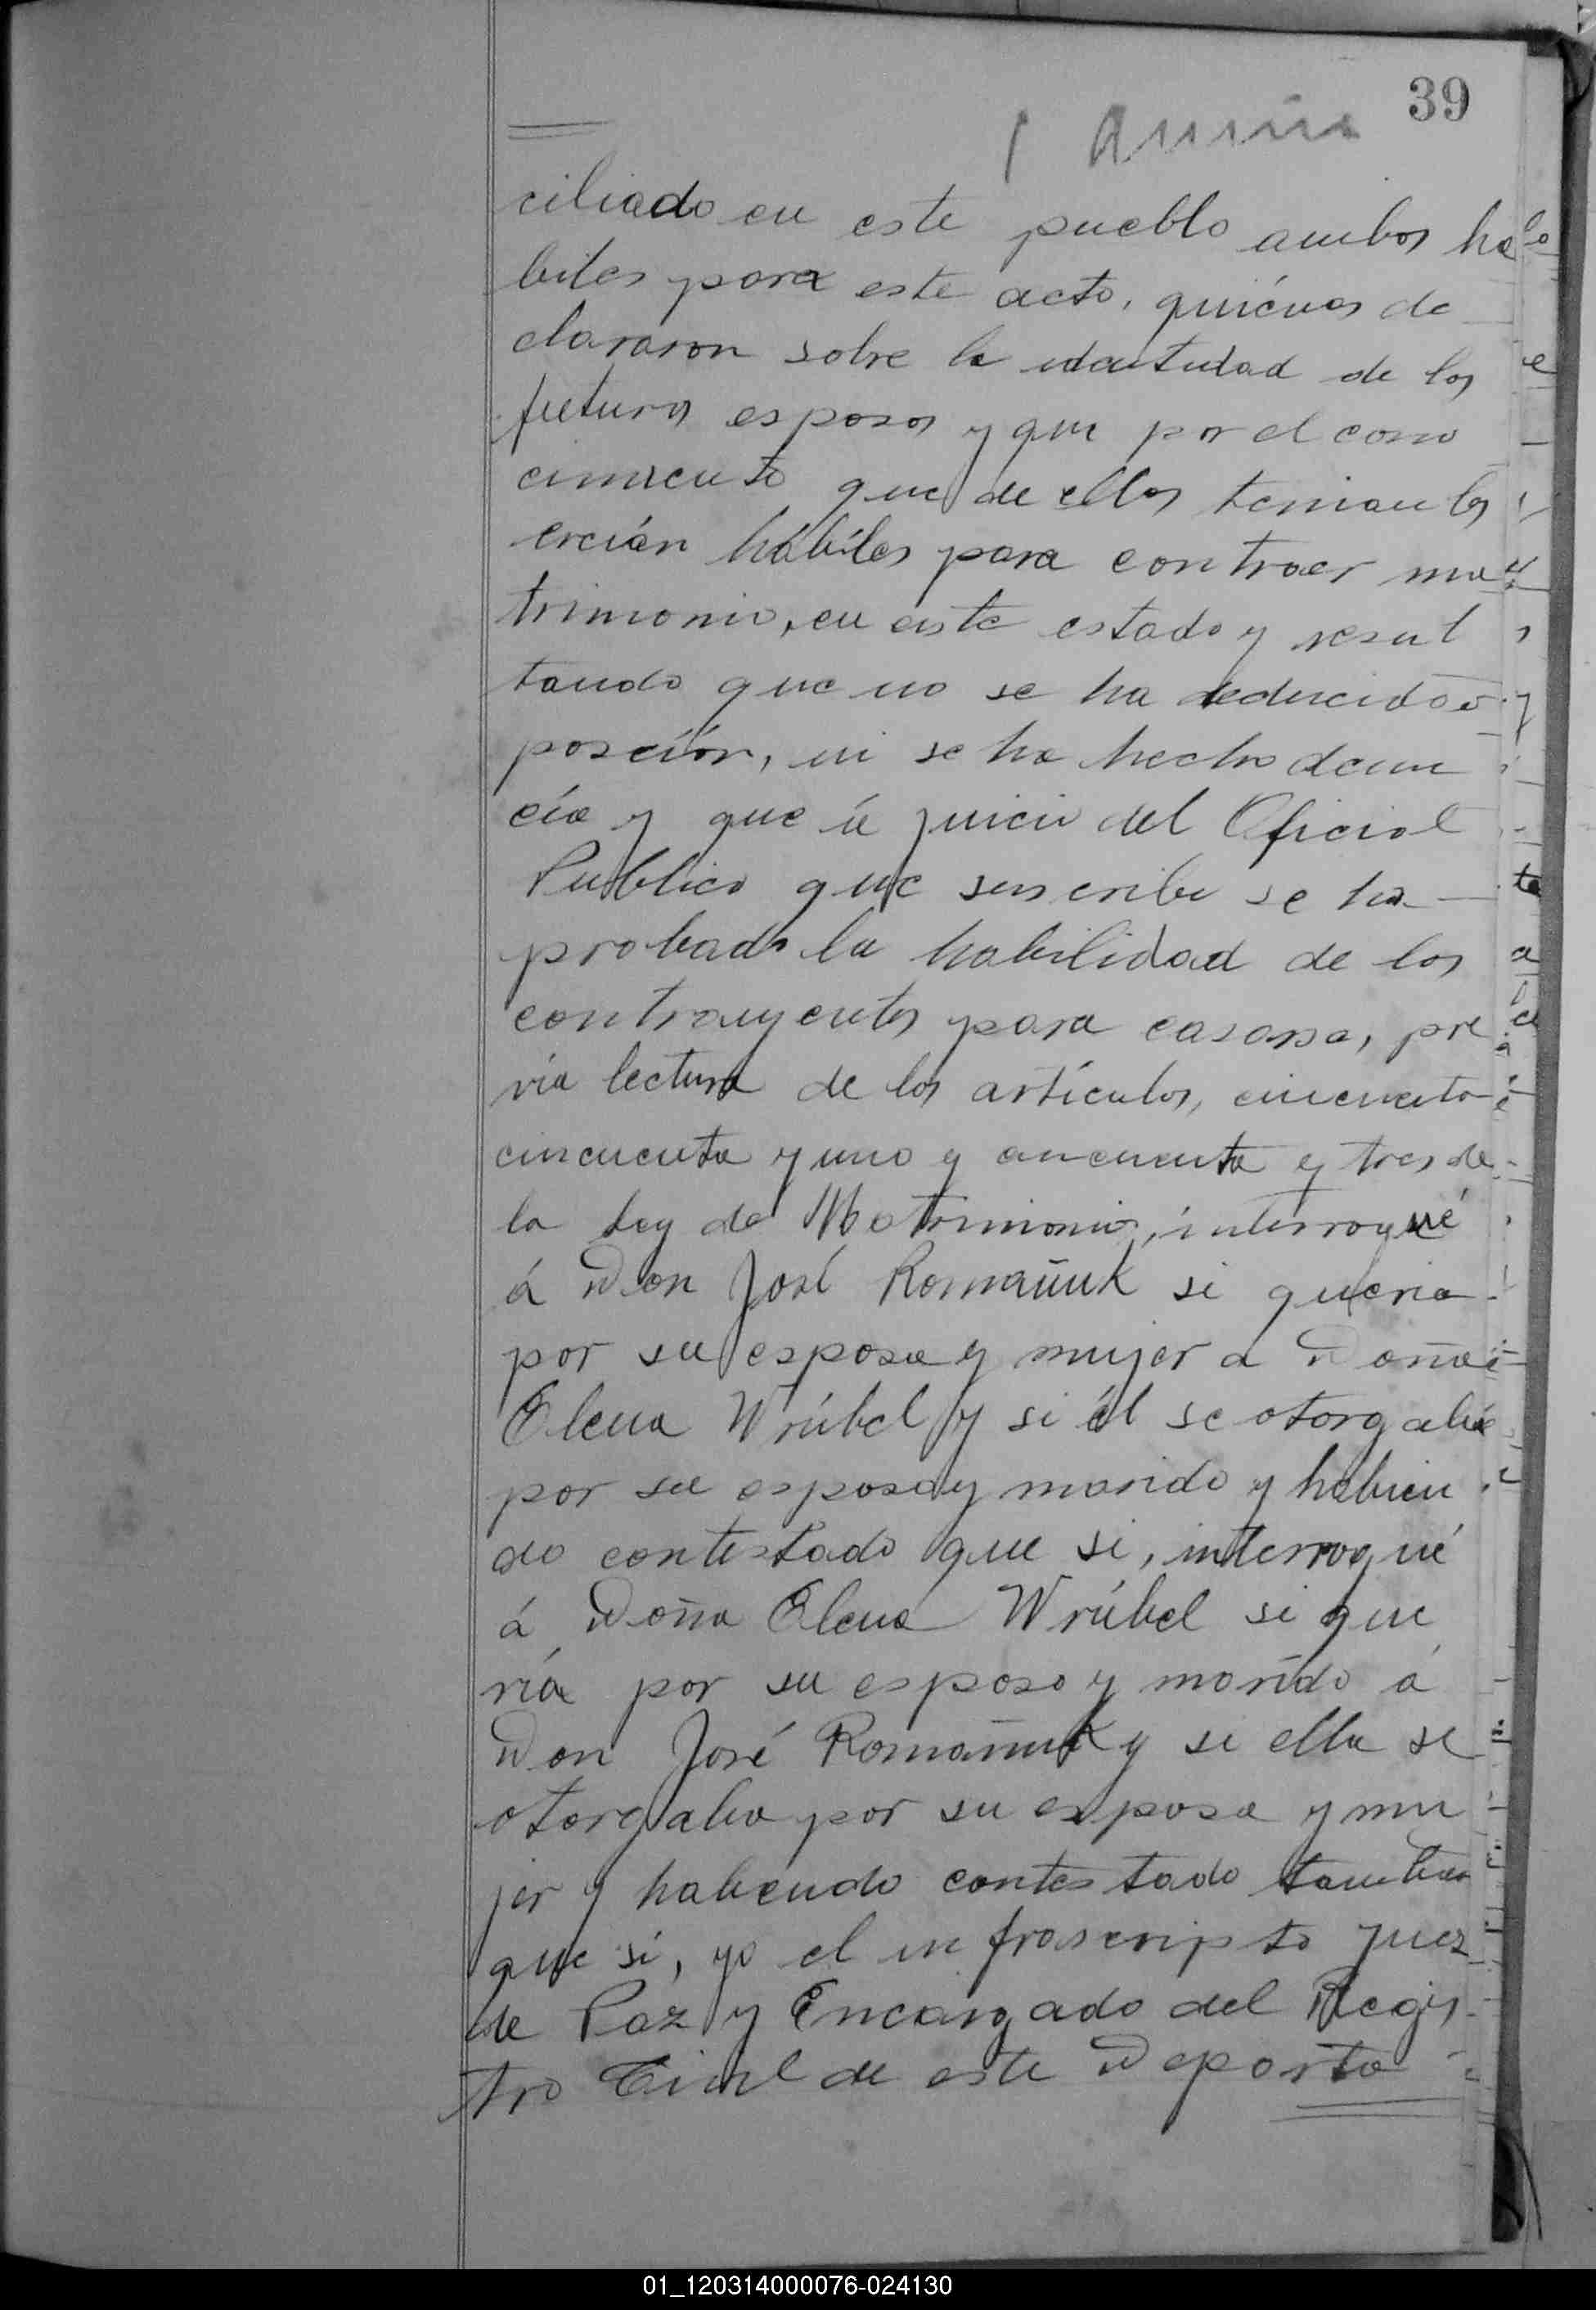 39
ciliado en este pueblo ambos ha
biles para este acto, quiénes de
clararon sobre la identidad de los
futuros esposos y que por el cono
cimiento que de ellos tenian los
creián hábiles para contraer ma
trimonio, en este estado y resul
tando que no se ha deducido o
posción, ni se ha hecho denun
cía y que á juicio del Oficial
Publico que suscribe se ha
probado la habilidad de los
contrayentes para casarse, pre
via lectura de los artículos, cincuenta
cincuenta y uno y cincuenta y tres de
la Ley de Matrimonio, interrogué
á Don José Romañuk si queria
por su esposa y mujer a Doña
Elena Wrúbel y si él se otorgaba
por su esposo y marido y habien
do contestado que si, interrogué
á Doña Elena Wrúbel si que
ría por su esposo y marido á
Don José Romañuk y si ella se
otorgaba por su esposa y mu
jer y habiendo contestado tambien
que si, yo el infrascripto Juez
de Paz y Encargado del Regis
tro Civil de este Departa
01_120314000076-024130